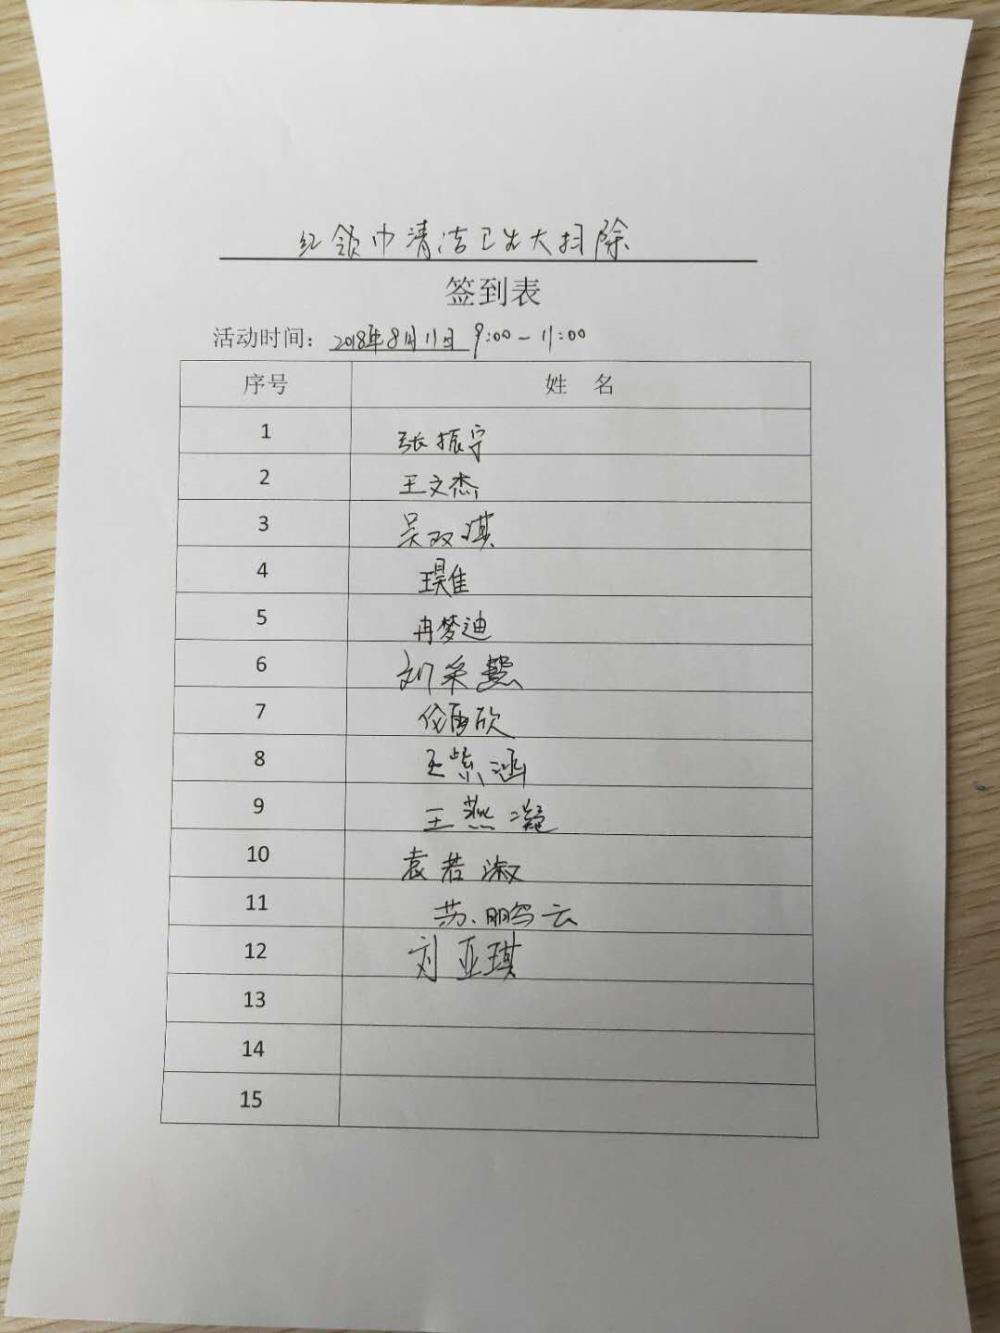 红领巾清洁卫生大扫除
签到表
活动时间：2018年8月11日 9:00-11:00
序号 姓 名
1 张振宇
2 王文杰
3 吴双琪
4
5 冉梦迪
6 刘采慧
7
8 王紫涵
9 王燕凝
10 袁若淑
11 苏鹏云
12 刘亚琪
13
14
15